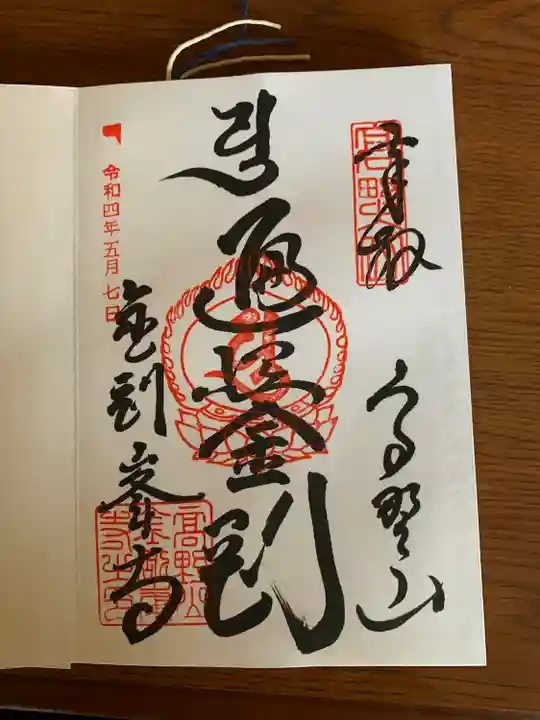 奉拝
高野山
遍照金剛
令和四年五月七日
金剛峯寺